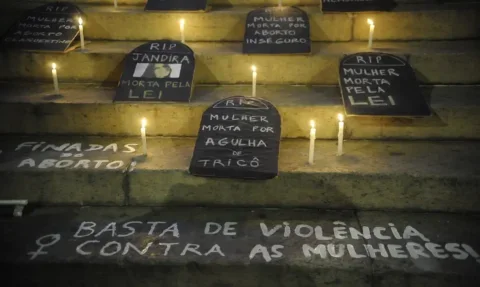 MULHER
MORTA POR
ABORTO
MULHER
MORTA POR ABORTO
INSEGURO
RIP
JANDIRA
MORTA PELA
LEI
RIP
MULHER
MORTA PELA
LEI
RIP
MULHER
MORTA POR
AGULHA
DE
TRICÔ
FINADAS DO
ABORTO!
BASTA DE VIOLÊNCIA
CONTRA AS MULHERES!